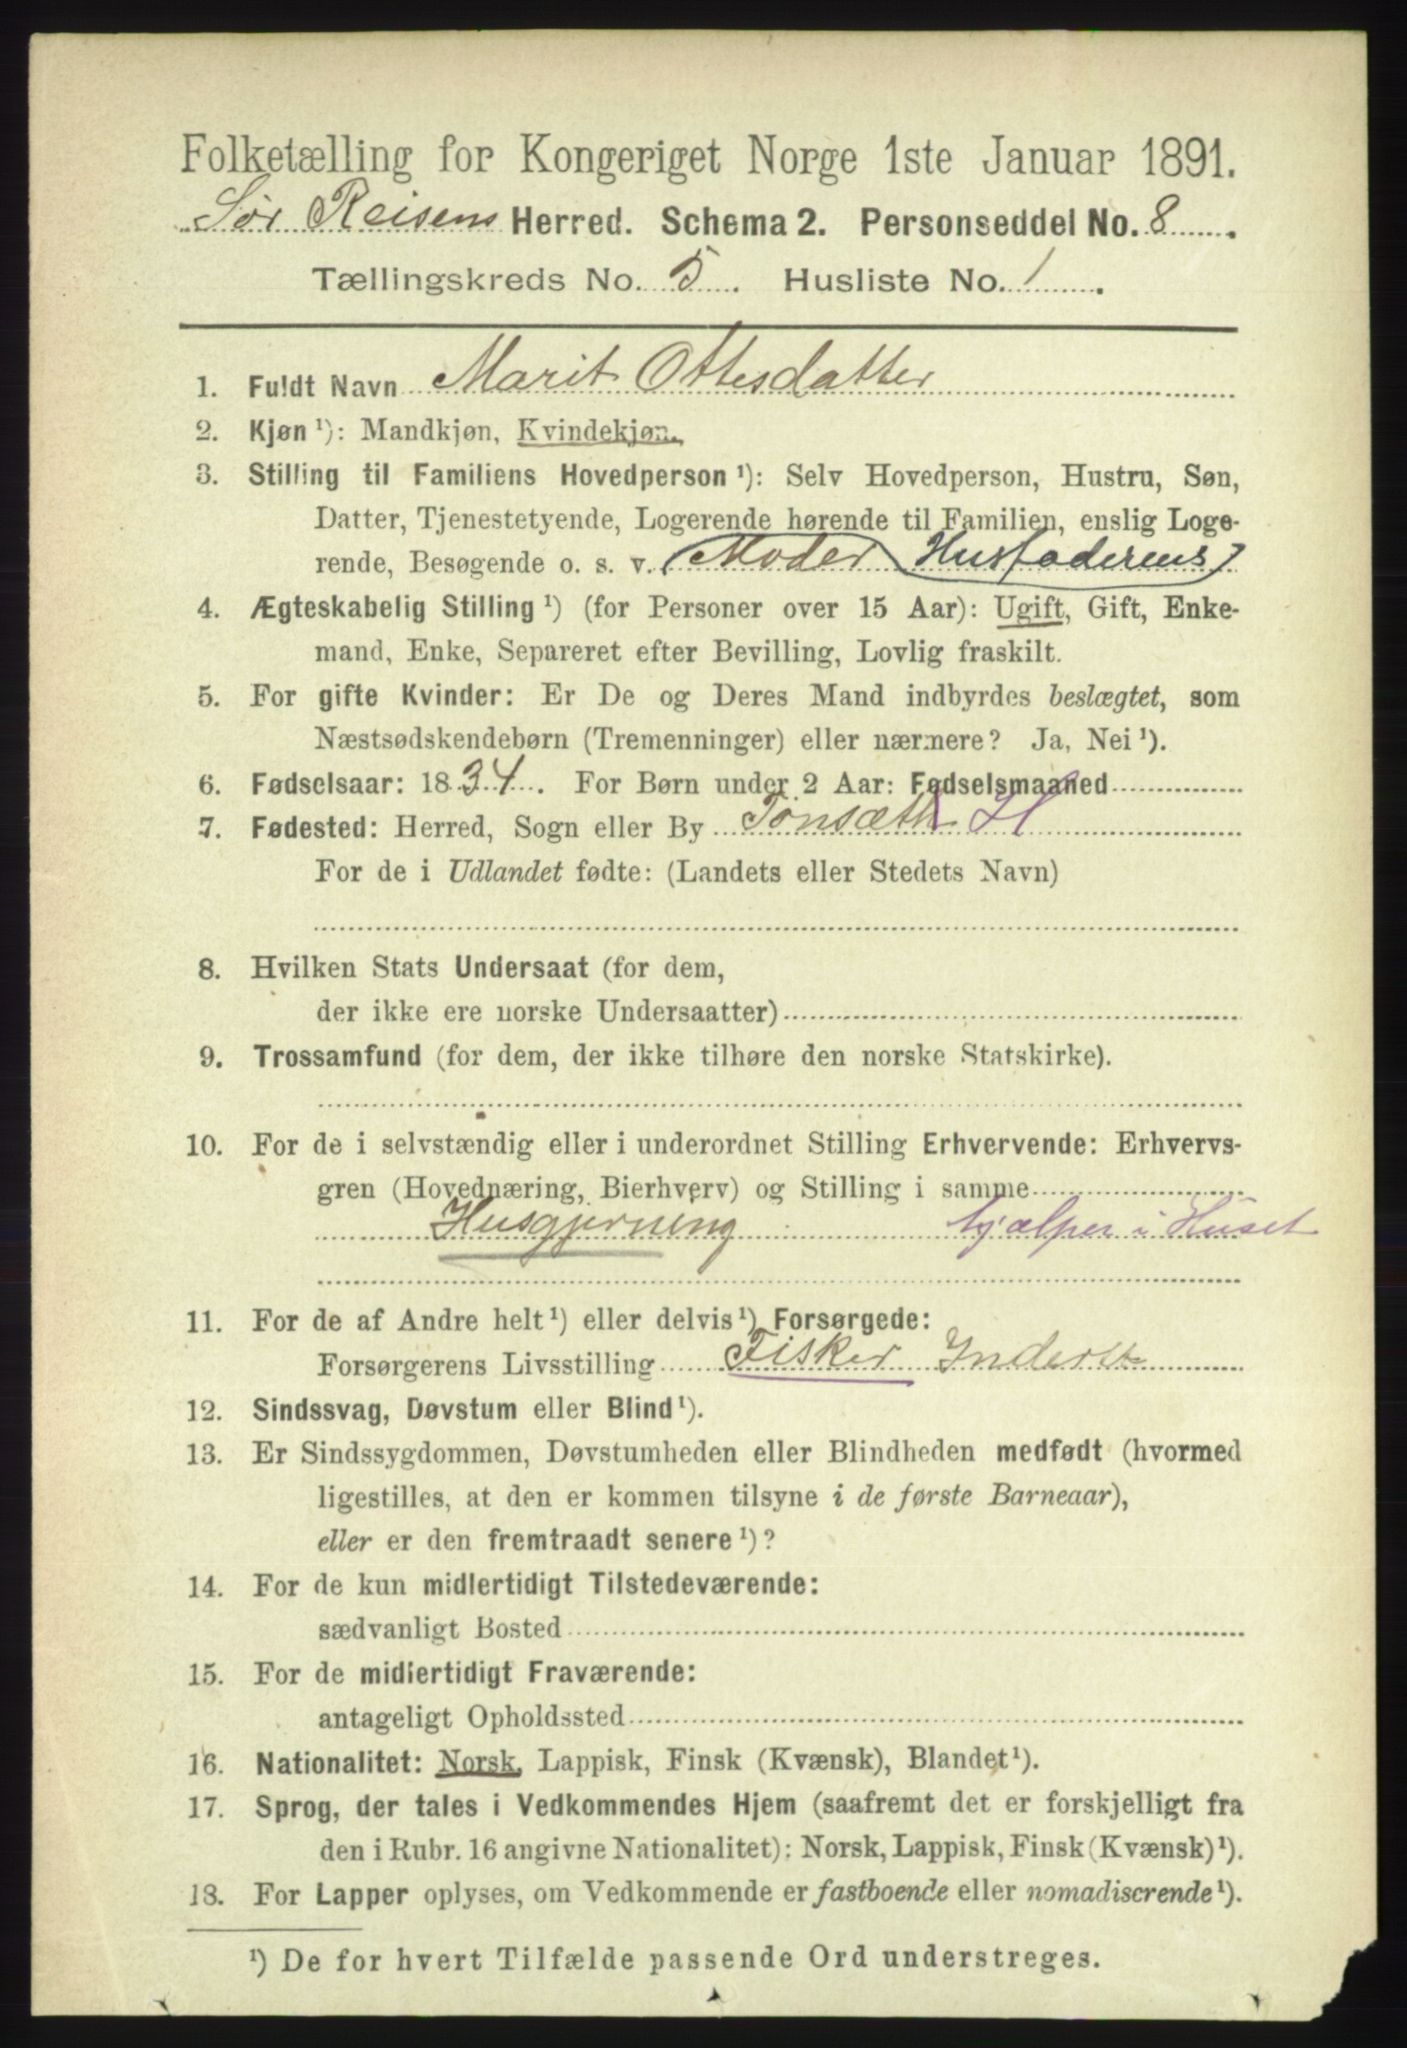 Folketælling for Kongeriget Norge 1ste Januar 1891.
Sør Reisens Herred. Schema 2. Personseddel No. 8
Tællingskreds No. 5. Husliste No. 1.
1. Fuldt Navn Marit Ottesdatter
2. Kjøn ¹): Mandkjøn, Kvindekjøn.
3. Stilling til Familiens Hovedperson ¹): Selv Hovedperson, Hustru, Søn,
Datter, Tjenestetyende, Logerende hørende til Familien, enslig Loge-
rende, Besøgende o. s. v. Moder Husfaderens
4. Ægteskabelig Stilling ¹) (for Personer over 15 Aar): Ugift, Gift, Enke-
mand, Enke, Separeret efter Bevilling, Lovlig fraskilt.
5. For gifte Kvinder: Er De og Deres Mand indbyrdes beslægtet, som
Næstsødskendebørn (Tremenninger) eller nærmere? Ja, Nei ¹).
6. Fødselsaar: 1834. For Børn under 2 Aar: Fødselsmaaned
7. Fødested: Herred, Sogn eller By Tonsæth H
For de i Udlandet fødte: (Landets eller Stedets Navn)
8. Hvilken Stats Undersaat (for dem,
der ikke ere norske Undersaatter)
9. Trossamfund (for dem, der ikke tilhøre den norske Statskirke).
10. For de i selvstændig eller i underordnet Stilling Erhvervende: Erhvervs-
gren (Hovednæring, Bierhverv) og Stilling i samme
Husgjerning hjælper i Huset
11. For de af Andre helt ¹) eller delvis ¹) Forsørgede:
Forsørgerens Livsstilling Fisker Inderst
12. Sindssvag, Døvstum eller Blind ¹).
13. Er Sindssygdommen, Døvstumheden eller Blindheden medfødt (hvormed
ligestilles, at den er kommen tilsyne i de første Barneaar),
eller er den fremtraadt senere ¹)?
14. For de kun midlertidigt Tilstedeværende:
sædvanligt Bosted
15. For de midlertidigt Fraværende:
antageligt Opholdssted
16. Nationalitet: Norsk, Lappisk, Finsk (Kvænsk), Blandet ¹).
17. Sprog, der tales i Vedkommendes Hjem (saafremt det er forskjelligt fra
den i Rubr. 16 angivne Nationalitet): Norsk, Lappisk, Finsk (Kvænsk) ¹).
18. For Lapper oplyses, om Vedkommende er fastboende eller nomadiserende ¹).
¹) De for hvert Tilfælde passende Ord understreges.